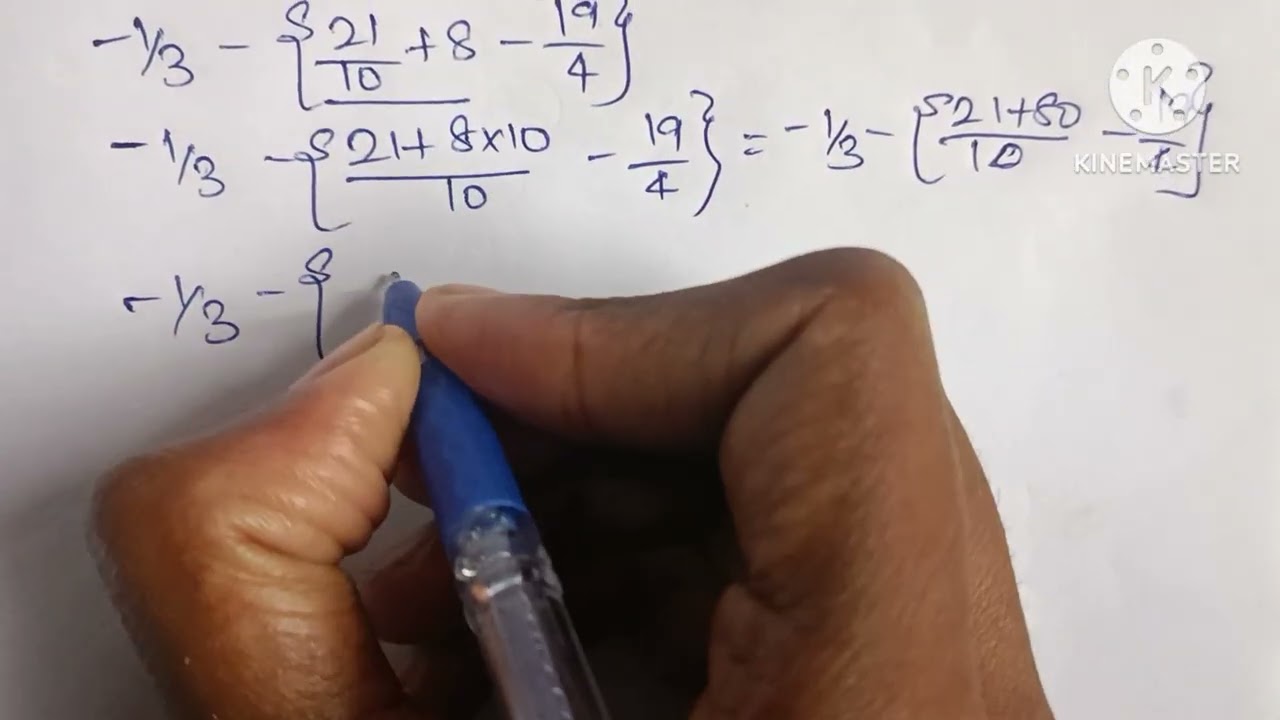 -1/3 - {21/10 + 8 - 19/4}
-1/3 - {21+8×10/10 - 19/4} = -1/3 - {21+80/10 - 19/4}
KINEMASTER
-1/3 - {